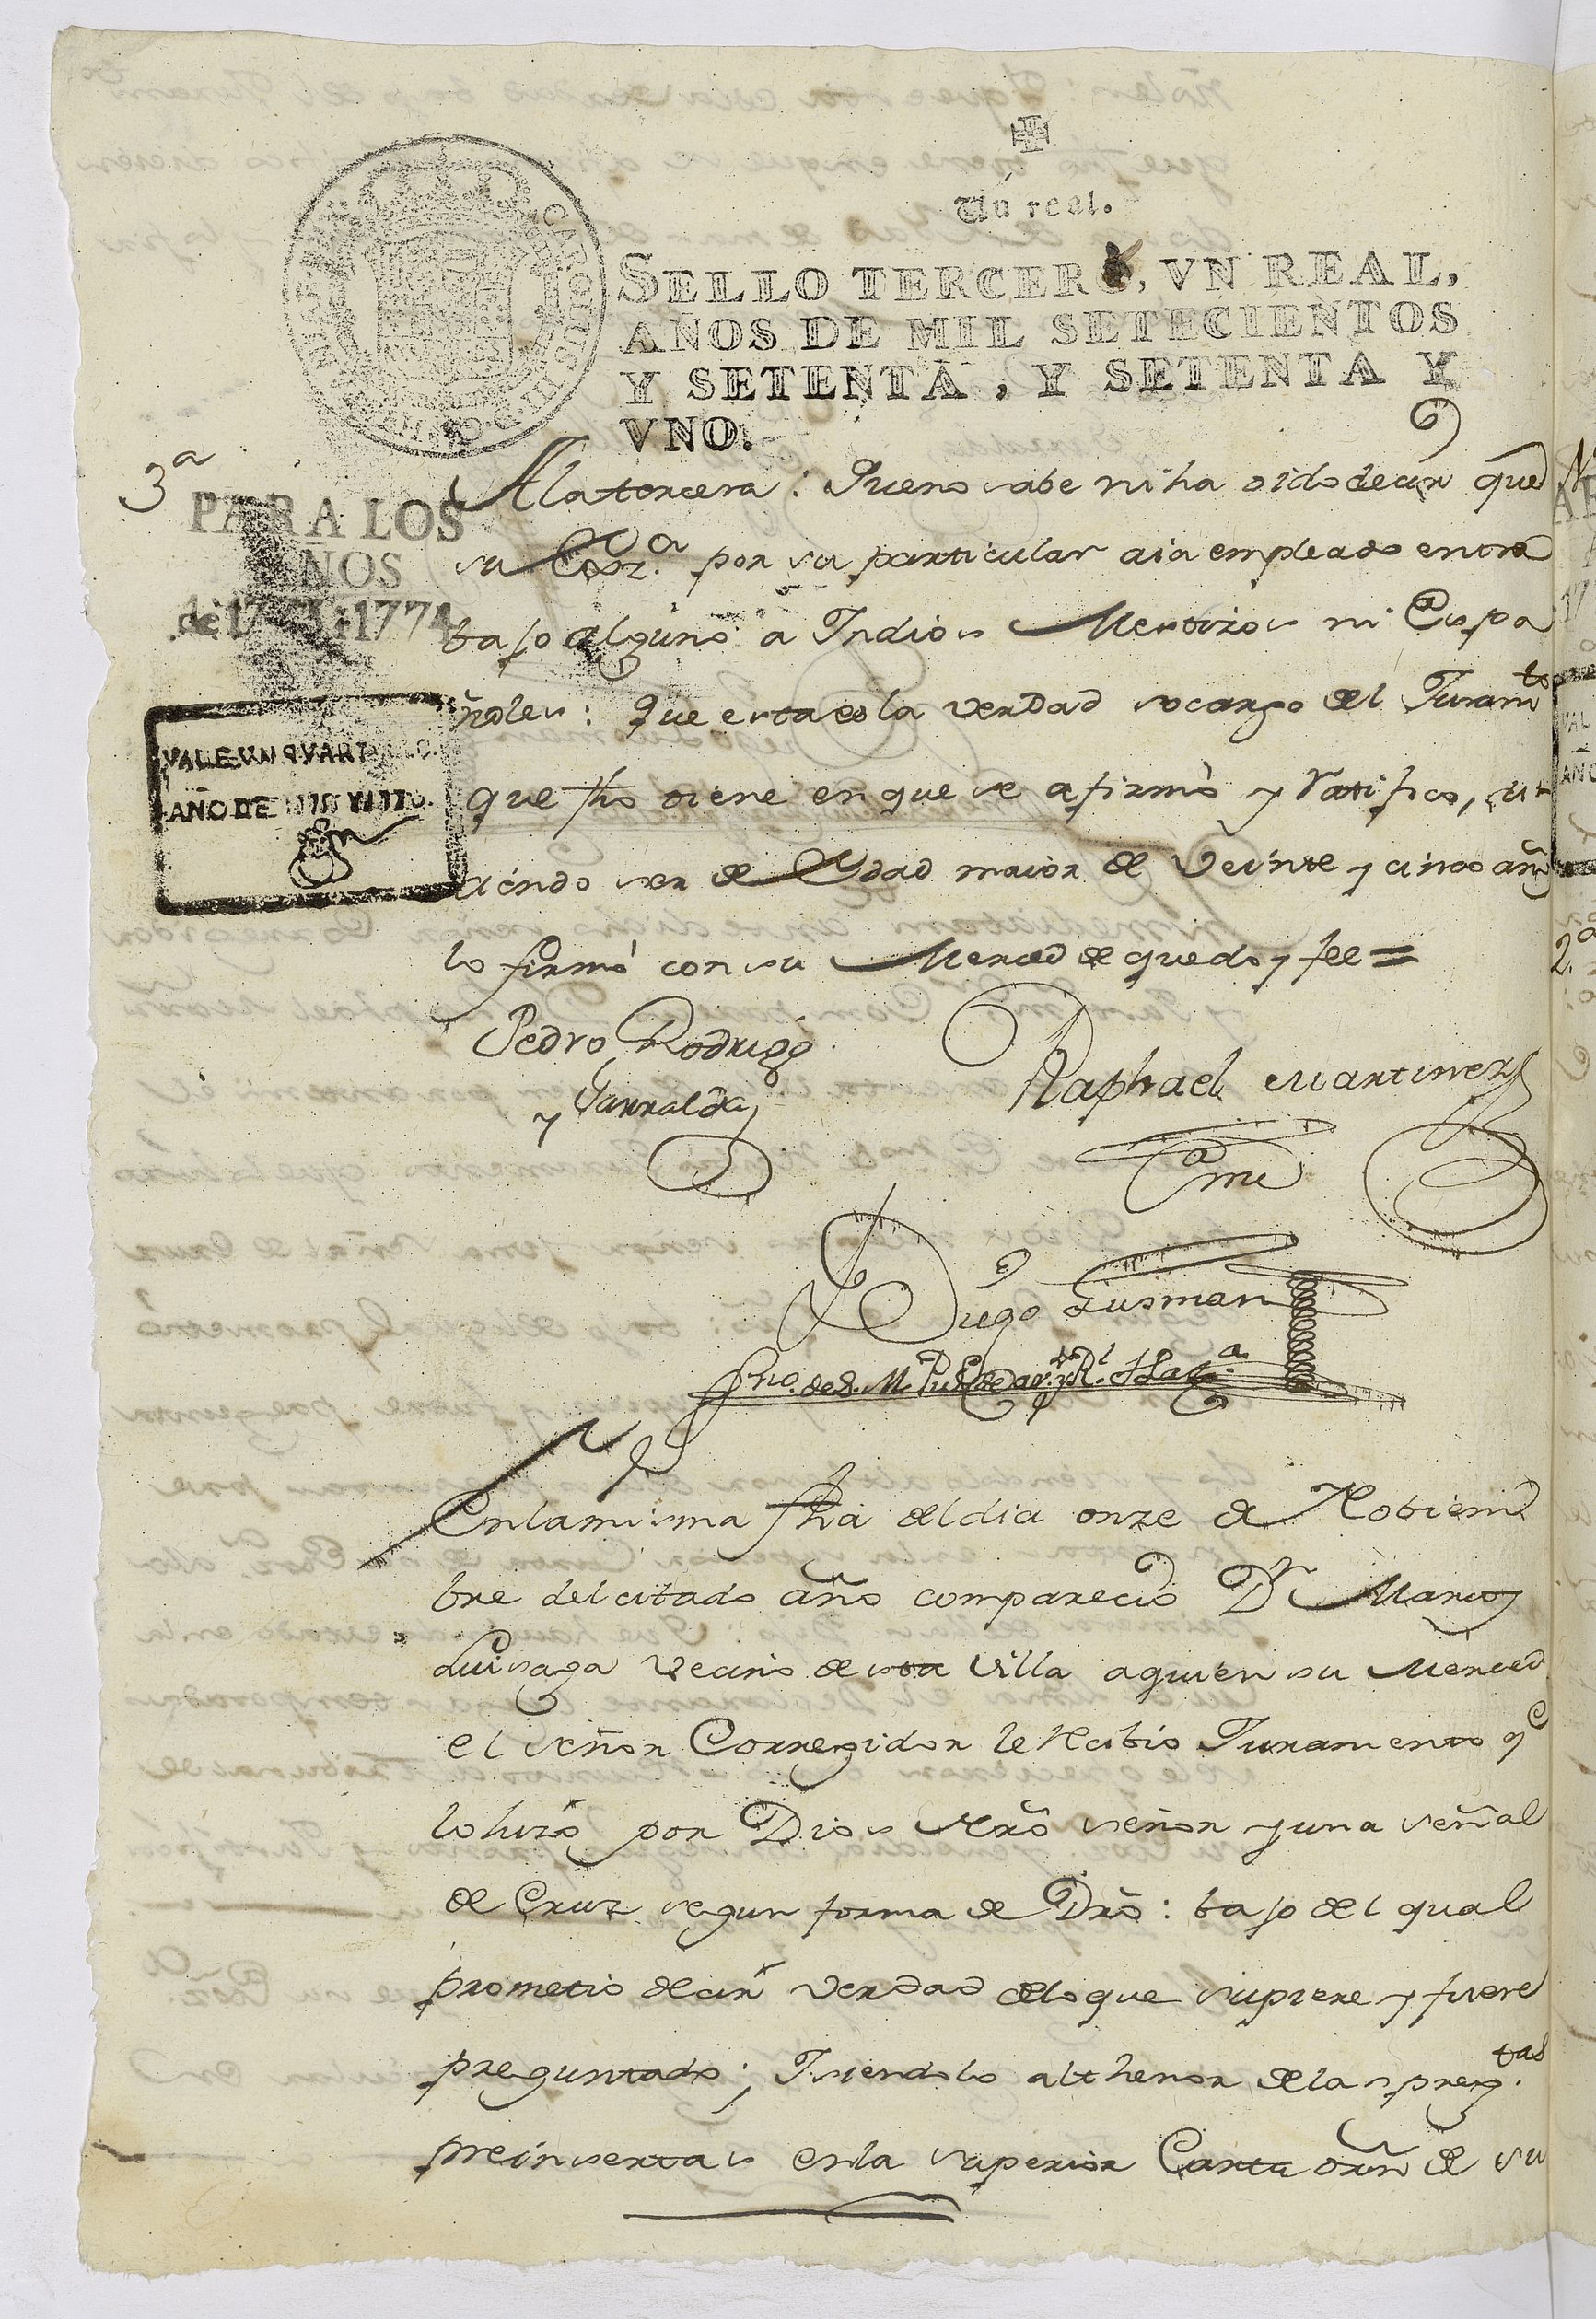 Un real.
SELLO TERCERO, VN REAL,
AÑOS DE MIL SETECIENTOS
Y SETENTA, Y SETENTA Y
VNO.
3a
PARA LOS
AÑOS
de 1774
VALE UN QVARTILLO
AÑO DE
A la tercera: Que no sabe ni ha oido decir que
su Exc.a por su particular aia empleado en tra
bajo alguno a Indios Mestizos ni Espa
ñoles: Que esta es la verdad so cargo del Juram.to
que fho tiene en que se afirmó y Ratifico, di
ciendo ser de Edad maior de Veinte y cinco añ.s
lo firmó con su Merced de que doy fee =
Pedro Rodrig.z
y Garralda
Raphael Martinez
Ante mi
Diego Gusman
Sno. de S. M. Pu.co
En la misma fha del dia onze de Nobiem
bre del citado año compareció Dn Marcos
Luisaga Vecino de esta Villa a quien su Merced
el señor Corregidor le Recibio Juramento q.e
lo hizo por Dios nro señor y una señal
de Cruz segun forma de Dro: bajo del qual
prometio decir verdad de lo que supiere y fuere
preguntado; Y siendolo al thenor de las preg.tas
preinsertas en la superior Carta orn de su